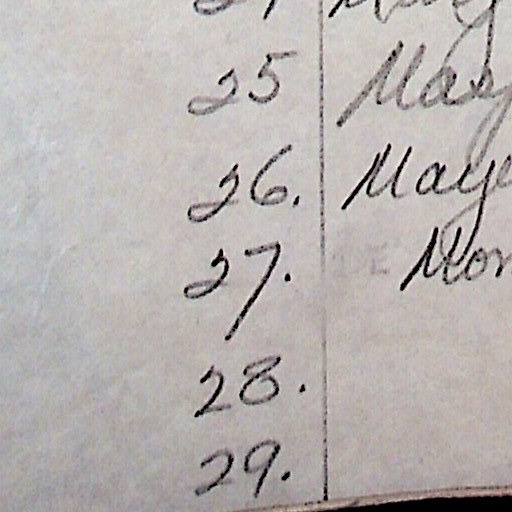 25 May
26. Maye
27. Mor
28.
29.